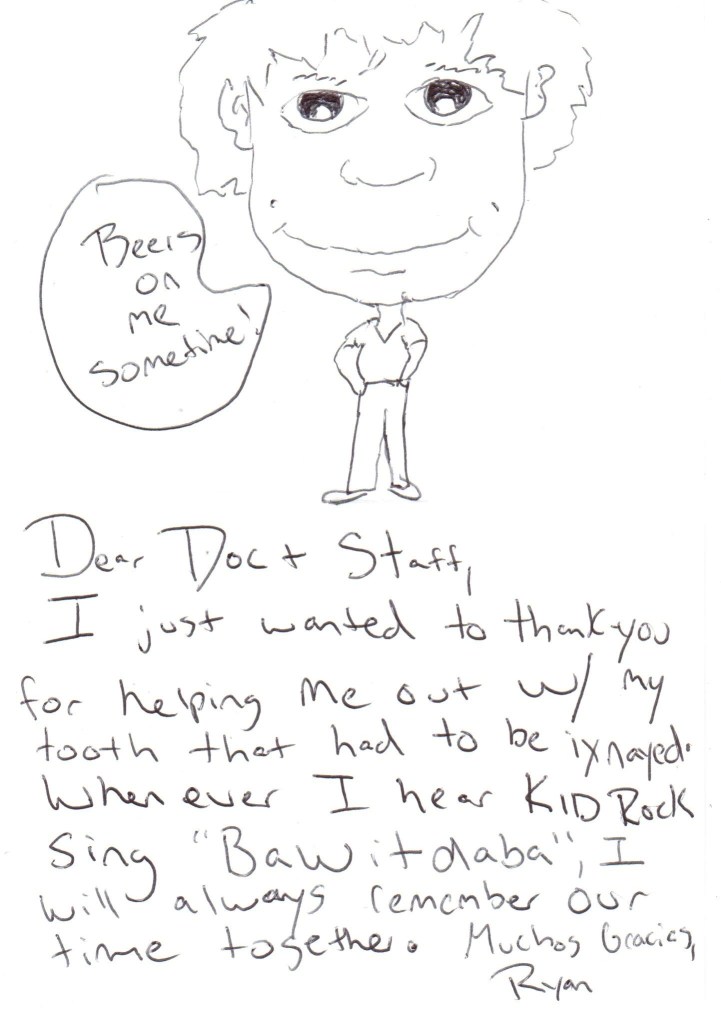 Beers
on
me
sometime!
Dear Doc + Staff,
I just wanted to thank you
for helping me out w/ my
tooth that had to be ixnayed.
Whenever I hear KID Rock
sing "Bawitdaba", I
will always remember our
time together. Muchos Gracias,
Ryan